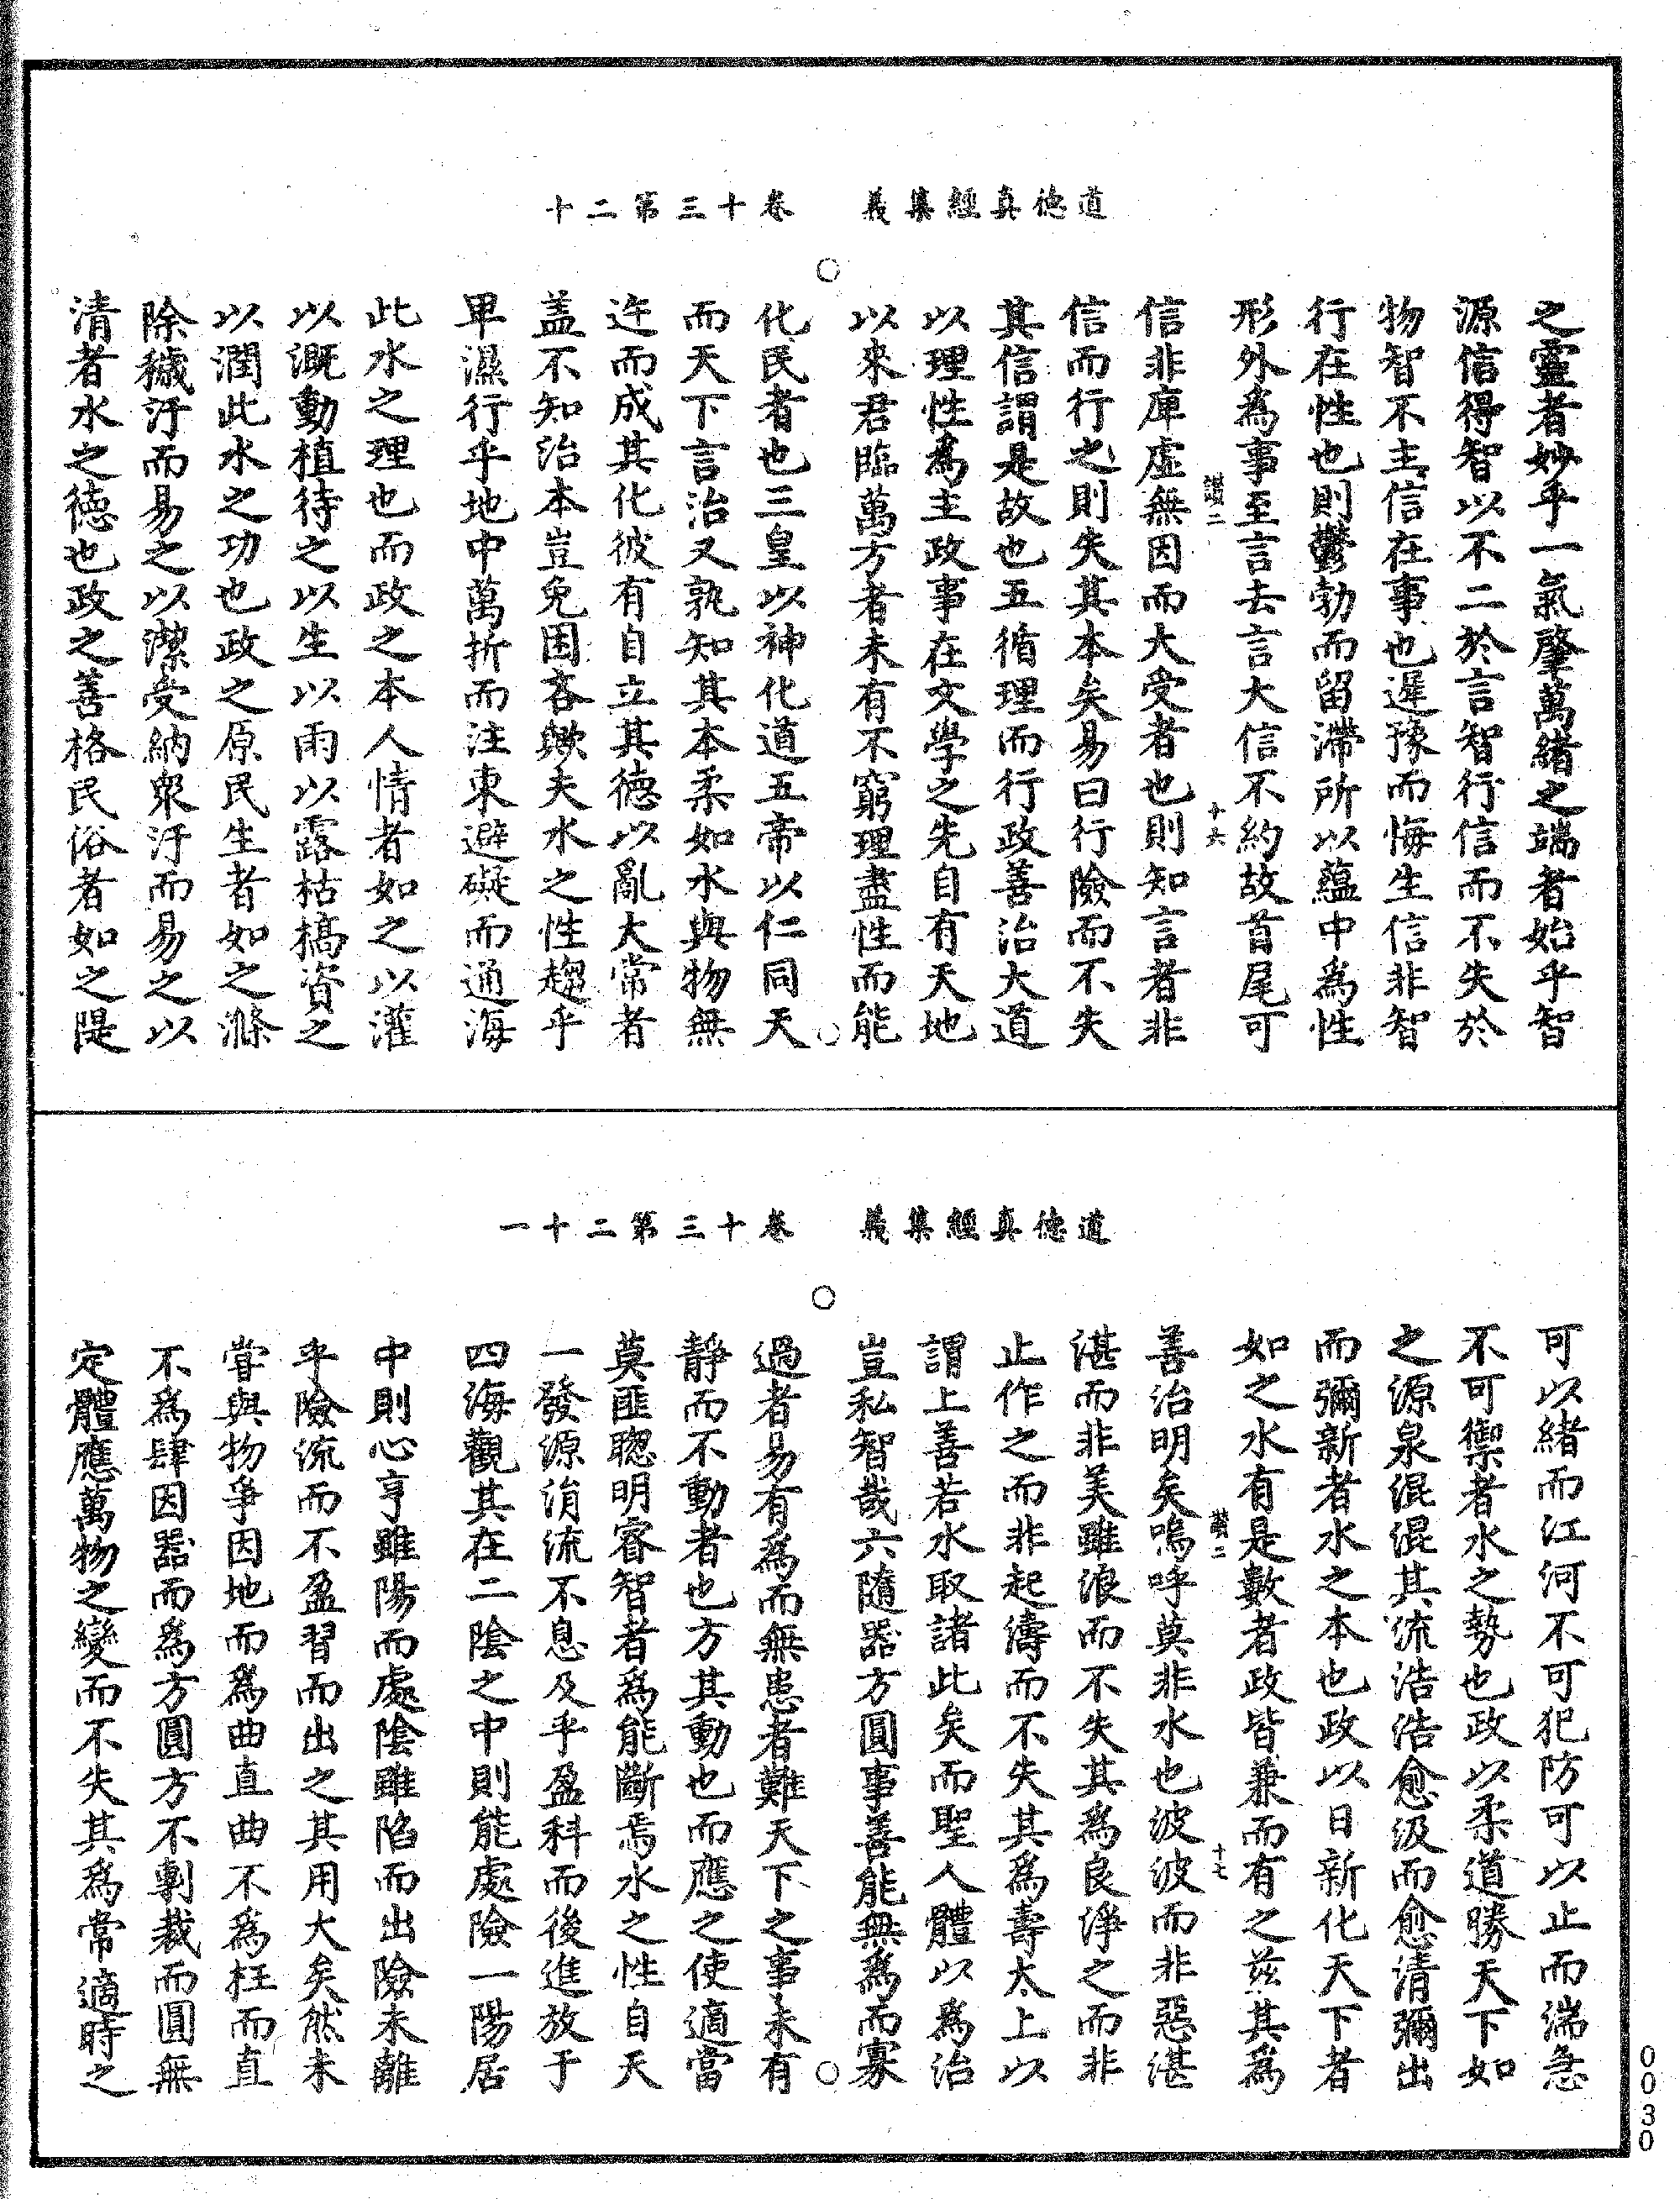 道德真經集義　卷十三第二十
之靈者妙乎一氣肇萬緒之端者始乎智
源信得智以不二於言智行信而不失於
物智不主信在事也遲豫而悔生信非智
行在性也則鬱勃而留滯所以蘊中為性
形外為事至言去言大信不約故首尾可
十六
信非庳虛無因而大受者也則知言者非
信而行之則失其本矣易曰行險而不失
其信謂是故也五循理而行政善治大道
以理性為主政事在文學之先自有天地
以來君臨萬方者未有不窮理盡性而能
化民者也三皇以神化道五帝以仁同天
而天下言治又孰知其本柔如水與物無
迕而成其化彼有自立其德以亂大常者
盖不知治本豈免困吝歟夫水之性趨乎
卑濕行乎地中萬折而注東避礙而通海
此水之理也而政之本人情者如之以灌
以溉動植待之以生以雨以露枯槁資之
以潤此水之功也政之原民生者如之滌
除穢汙而易之以潔受納衆汙而易之以
清者水之德也政之善格民俗者如之隄
道德真經集義　卷十三第二十一
可以緒而江河不可犯防可以止而湍急
不可禦者水之勢也政以柔道勝天下如
之源泉混混其流浩浩愈汲而愈清彌出
而彌新者水之本也政以日新化天下者
如之水有是數者政皆兼而有之兹其為
十七
善治明矣嗚呼莫非水也波波而非惡湛
湛而非美雖浪而不失其為良淨之而非
止作之而非起濤而不失其為壽太上以
謂上善若水取諸此矣而聖人體以為治
豈私智哉六隨器方圓事善能無為而寡
過者易有為而無患者難天下之事未有
靜而不動者也方其動也而應之使適當
莫匪聰明睿智者為能斷焉水之性自天
一發源涓流不息及乎盈科而後進放于
四海觀其在二陰之中則能處險一陽居
中則心亨雖陽而處陰雖陷而出險未離
乎險流而不盈習而出之其用大矣然未
甞與物爭因地而為曲直曲不為枉而直
不為肆因器而為方圓方不剸裁而圓無
定體應萬物之變而不失其為常適時之
0030